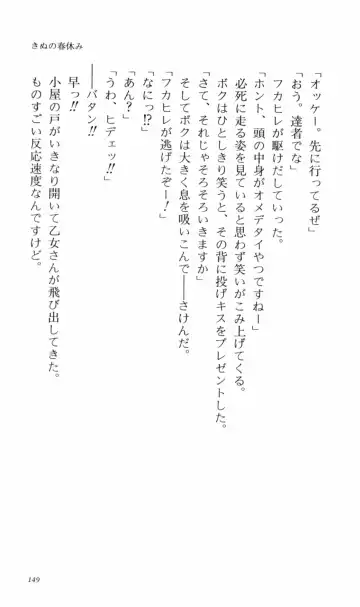 きぬの春休み
「オッケー。先に行ってるぜ」
「おう。達者でな」
フカヒレが駆けだしていった。
「ホント、頭の中身がオメデタイやつですねー」
必死に走る姿を見ていると思わず笑いがこみ上げてくる。
ボクはひとしきり笑うと、その背に投げキスをプレゼントした。
「さて、それじゃそろそろいきますか」
そしてボクは大きく息を吸いこんで――さけんだ。
「フカヒレが逃げたぞー！」
「なにっ!?」
「あん？」
「うわ、ヒデェッ!!」
――バタン!!
早っ!!
小屋の戸がいきなり開いて乙女さんが飛び出してきた。
ものすごい反応速度なんですけど。
149